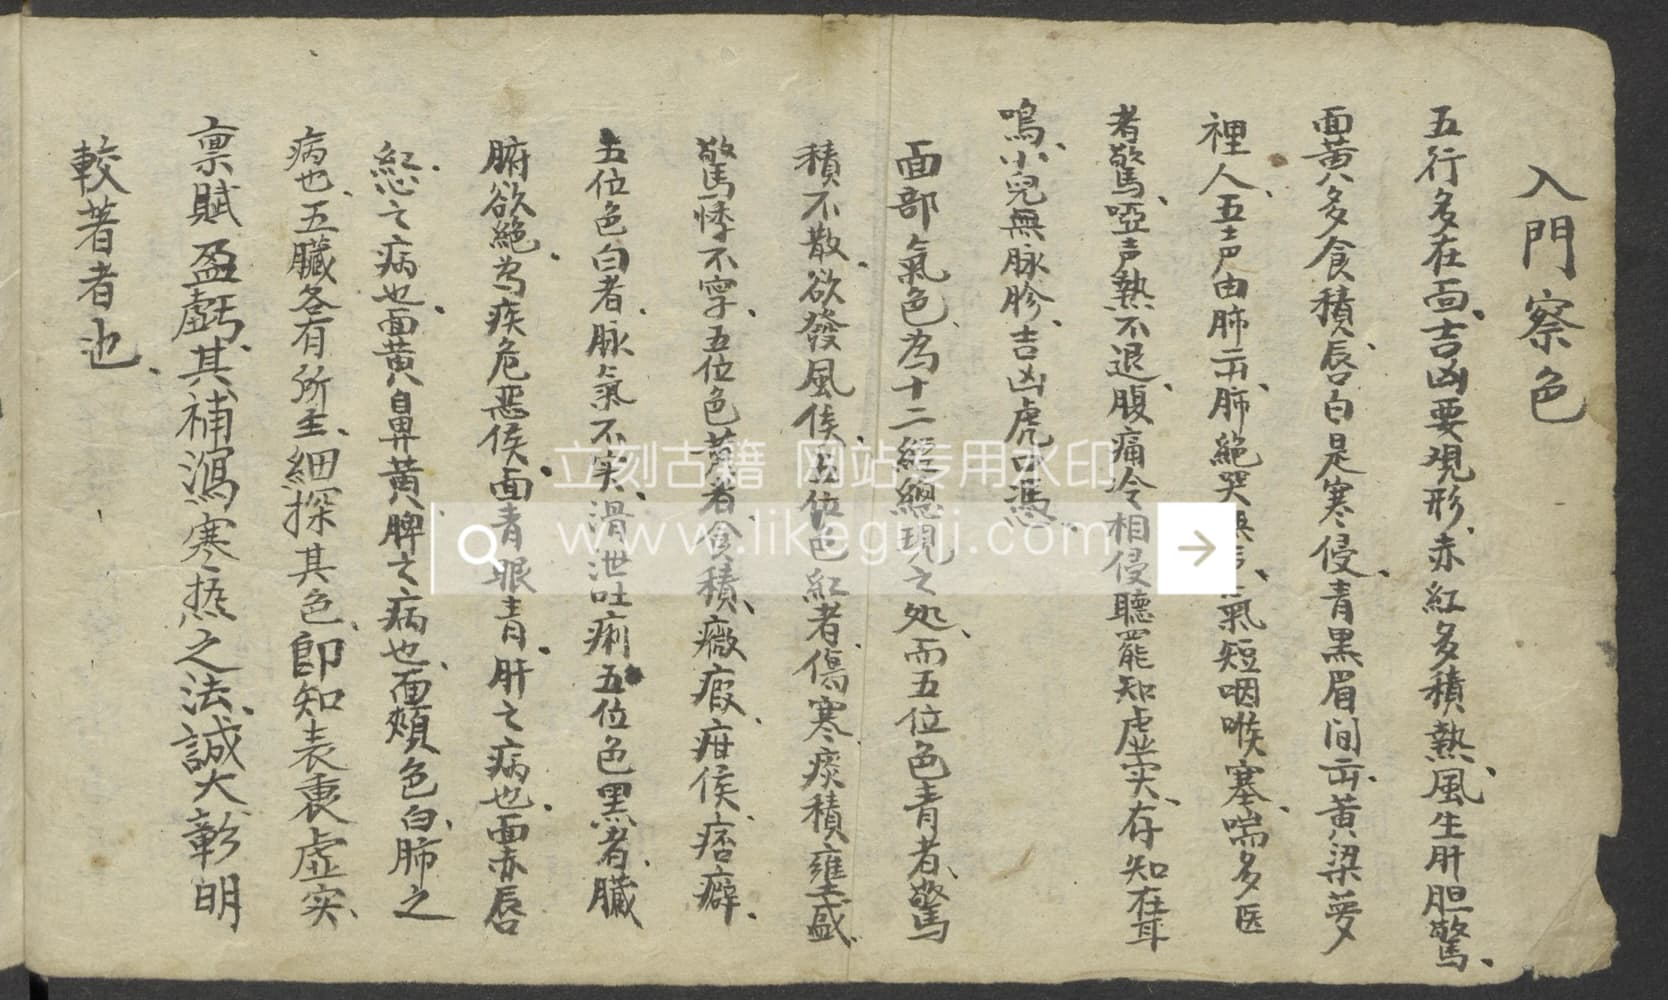 入門察色
五行多在面、吉凶要覌形、赤紅多積熱、風生肝胆驚、
面黄多食積、唇白是寒侵、青黑眉間出、黄粱夢
裡人、五声由肺出、肺絶哭無 氣短咽喉塞、喘多医
者驚、啞声熱不退、腹痛冷相侵聽罷知虚実、存知在耳
鳴、小兒無脉胗、吉凶虎口憑、
面部氣色、為十二經總現之処、而五位色青者、驚
積不散、欲發風候、五位色紅者、傷寒痰積壅盛、
驚悸不寧、五位色黄者、食積、癥瘕、疳候、痞癖、
五位色白者、脉氣不実、滑泄吐痢五位色黑者、臟
腑欲絶、為疾危惡候、面青眼青、肝之病也、面赤唇
紅、心之病也、面黄鼻黄、脾之病也、面頰色白、肺之
病也、五臟各有所主、細探其色、即知表裏虚実、
禀賦盈虧、其補瀉寒热之法、誠大彰明
較著者也、
立刻古籍 网站专用水印
www.likeguji.com